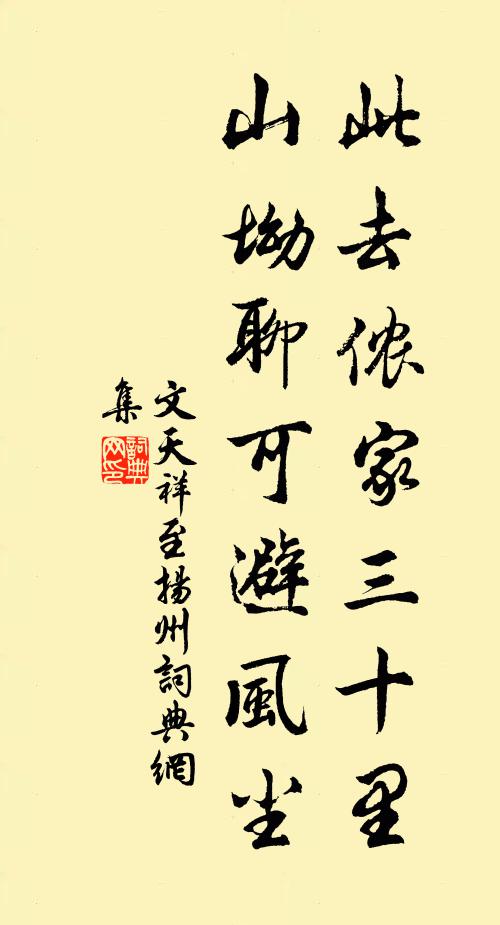 此去侬家三十里
山坳聊可避風尘
文天祥至揚州詞典網
集
詞典网印